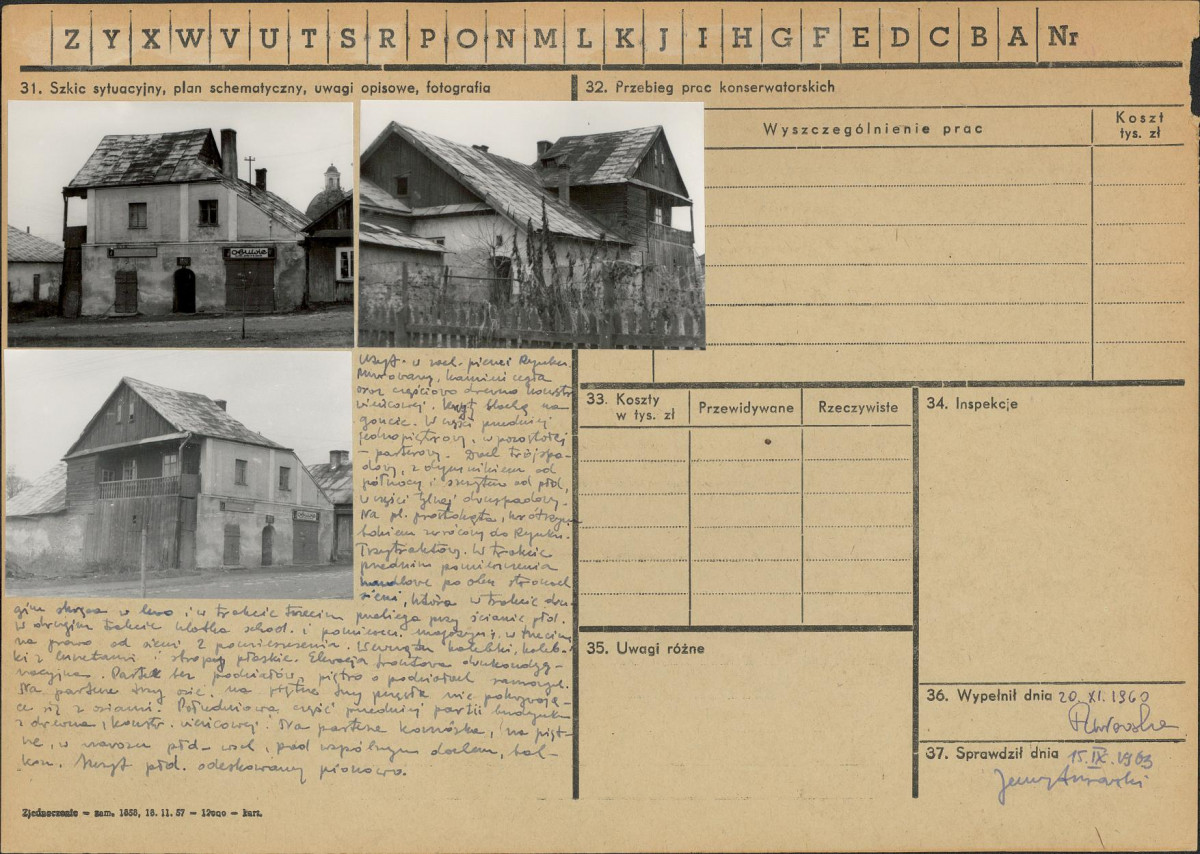 Z Y X W V U T S R P O N M L K J I H G F E D C B A Nr
31. Szkic sytuacyjny, plan schematyczny, uwagi opisowe, fotografia
32. Przebieg prac konserwatorskich
Wyszczególnienie prac
Koszt
tys. zł
OBUWIE
Usyt. w wsch. pierzei Rynku.
Murowany, kamień cegła
oraz częściowo drewno konstr.
wieńcowej. Kryty blachą na
goncie. W części przedniej
jednopiętrowy, w pozostałej
– parterowy. Dach trójspa-
dowy, z dymnikiem od
północy i szczytem od płd,
w części tylnej dwuspadowy.
Na pl. prostokąta, krótszym
bokiem zwrócony do Rynku.
Trzytraktowy. W trakcie
przednim pomieszczenia
handlowe po obu stronach
sieni, która w trakcie dru-
gim skręca w lewo i w trakcie trzecim przebiega przy ścianie płd.
W drugim trakcie klatka schod. i pomieszcz. magazyn; w trzecim
na prawo od sieni 2 pomieszczenia. Wewnątrz kolebki, koleb-
ki z lunetami i stropy płaskie. Elewacja frontowa dwukondyg-
nacyjna. Parter bez podziałów, piętro o podziałach ramowych.
Na parterze trzy osie, na piętrze trzy przęsła nie pokrywają-
ce się z osiami. Południowa część przedniej partii budynku
z drewna, konstr. wieńcowej. Na parterze komórka, na pięt-
rze, w narożu płd-wsch, pod wspólnym dachem, bal-
kon. Szczyt płd. odeskowany pionowo.
33. Koszty
w tys. zł
Przewidywane
Rzeczywiste
34. Inspekcje
35. Uwagi różne
36. Wypełnił dnia 20. XI. 1960
37. Sprawdził dnia 15. IX. 1963
Zjednoczenie — zam. 1858, 18. 11. 57 — 12000 — kart.